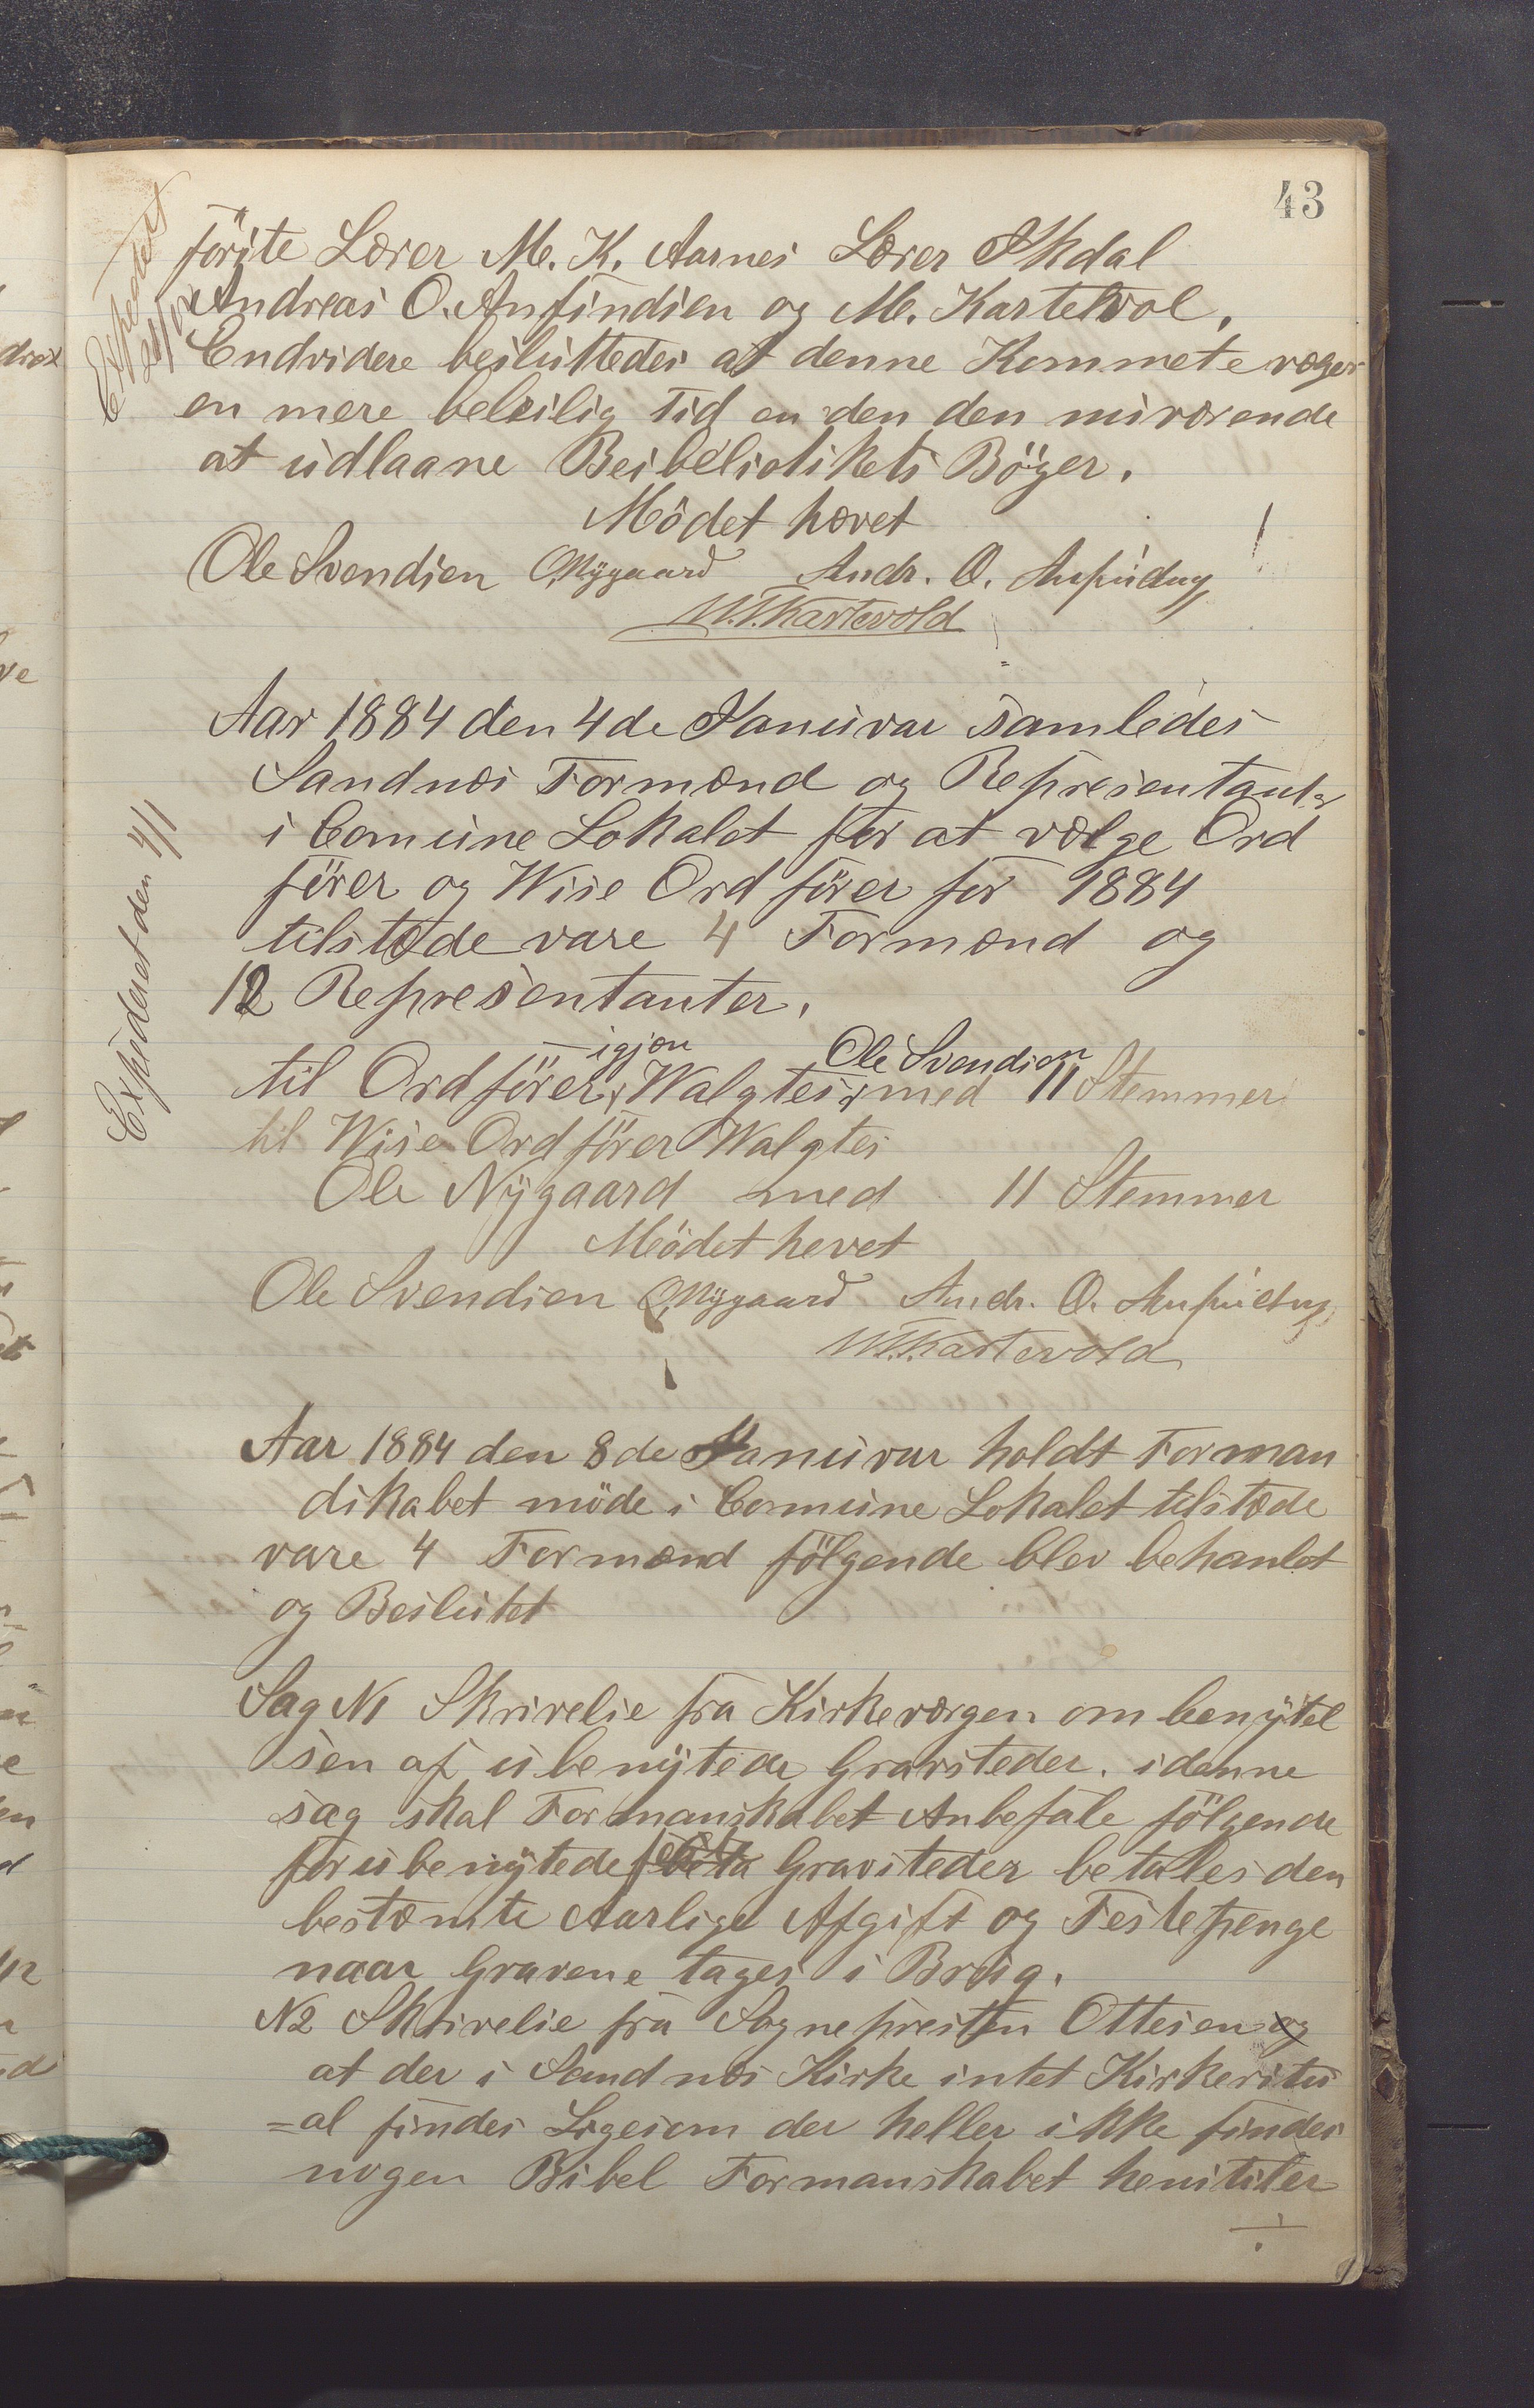 43
förste Lærer M. K. Aarnes Lærer Skdal
Andreas O. Anfindsen og M. Kartevol.
Endvidere besluttedes at denne Kommete væger
en mere beleilig Tid en den den nuværende
at udlaane Beibeliotikets Böger.
Mödet hævet
Ole Svendsen O. Nygaard Andr. O. Anfindsen
M. T. Kartevold
Expederet
Aar 1884 den 4de Januvar samledes
Sandnæs Formænd og Represientanter
i Comune Lokalet for at vælge Ord
förer og Wise Ordförer for 1884
tilstæde vare 4 Formænd og
12 Represientanter.
Expederet den 4/1
til Ordförer igjæn Walgtes Ole Svendsen med 11 Stemmer
til Wise Ordförer Walgtes
Ole Nÿgaard med 11 Stemmer
Mödet hevet
Ole Svendsen O. Nygaard Andr. O. Anfindsen
M. T. Kartevold
Aar 1884 den 8de Januvar holdt Forman
dskabet möde i Comune Lokalet tilstæde
vare 4 Formænd fölgende blev behanlet
og Beslutet
Sag N1 Skrivelse fra Kirkeværgen om benÿtel
sen af ubenÿtede Gravsteder. i denne
sag skal Formanskabet Anbefale fölgende
for ubenÿtede Gravsteder betales den
bestæmte Aarlige Afgift og Festepenge
naar Gravene tages i Brug.
N2 Skrivelse fra Sognepresten Ottesen og
at der i Sandnæs Kirke intet Kirkeritu
=al findes Ligesom der heller ikke findes
nogen Bibel Formanskabet henstiler